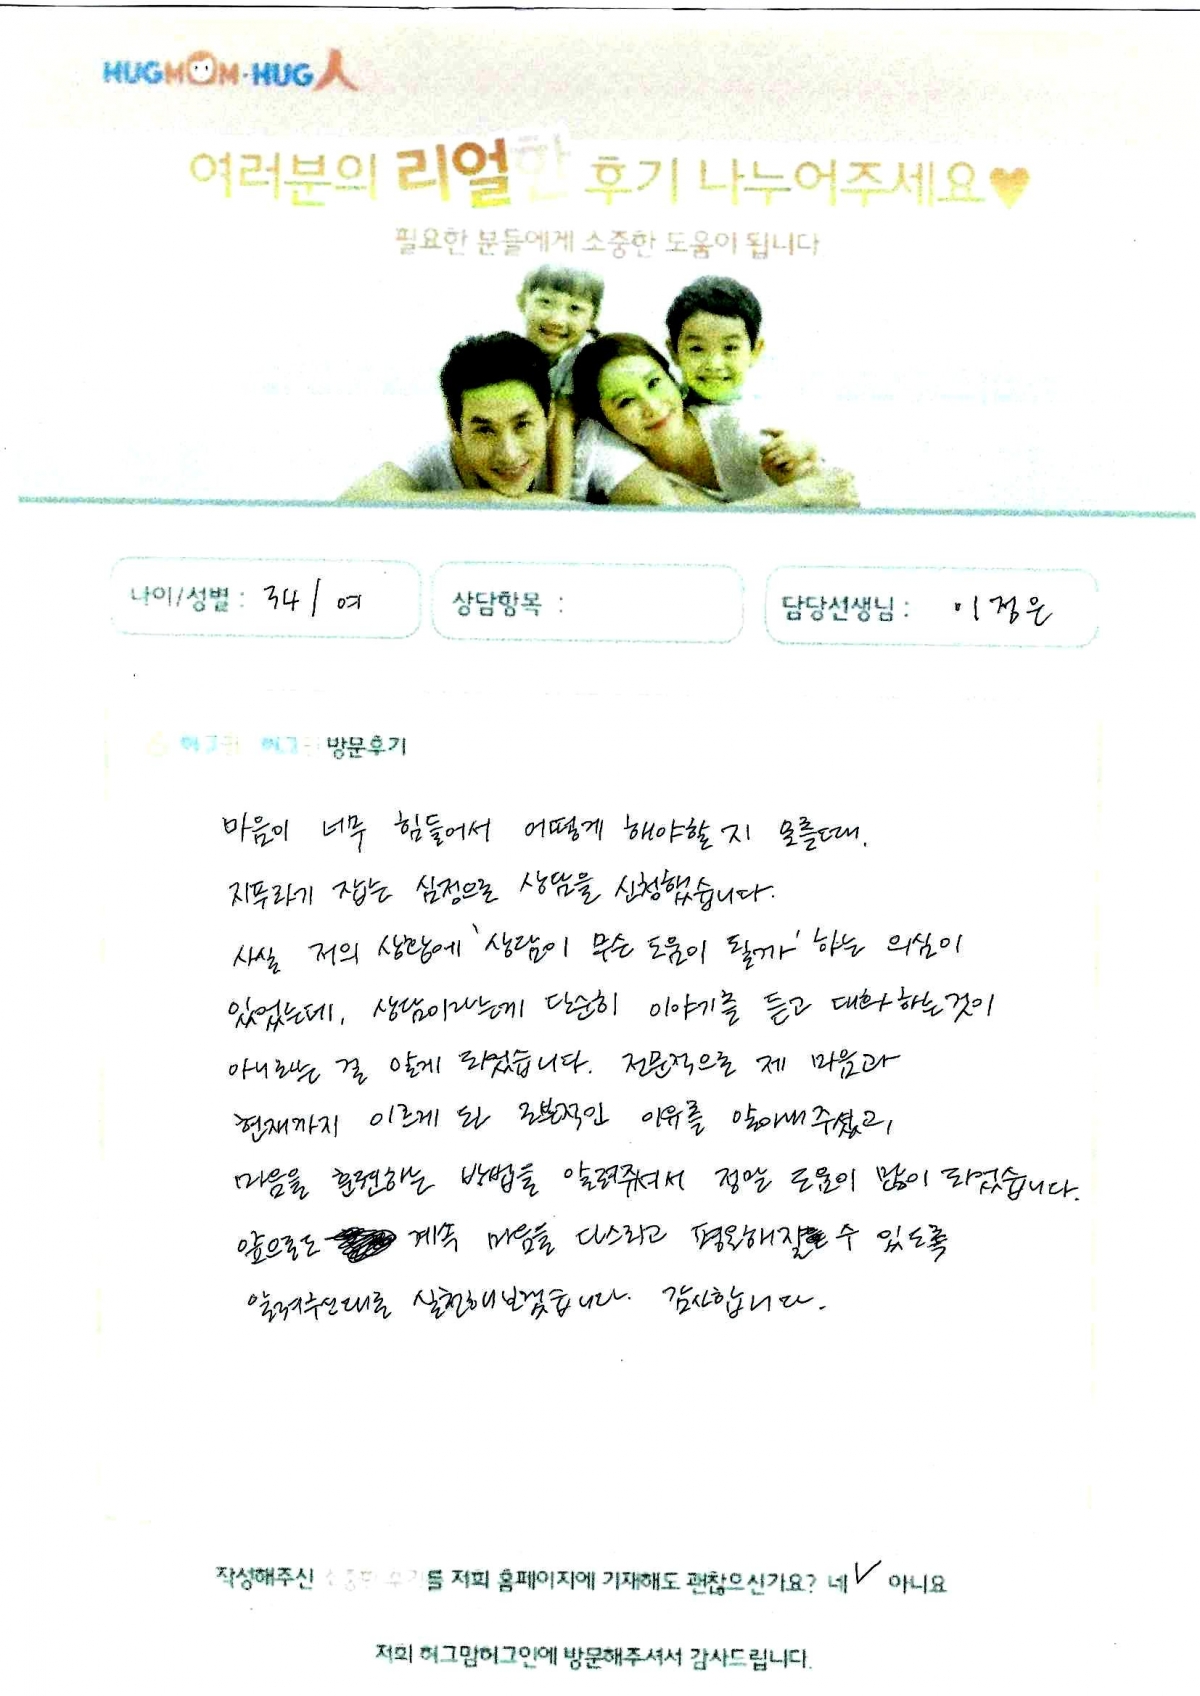 HUGMOM·HUG人
여러분의 리얼한 후기 나누어주세요♥
필요한 분들에게 소중한 도움이 됩니다
나이/성별 : 34 / 여
상담항목 :
담당선생님 : 이정은
허그맘 허그인 방문후기
마음이 너무 힘들어서 어떻게 해야할 지 모를때,
지푸라기 잡는 심정으로 상담을 신청했습니다.
사실 저의 상황에 '상담이 무슨 도움이 될까' 하는 의심이
있었는데, 상담이라는게 단순히 이야기를 듣고 대화하는것이
아니라는 걸 알게 되었습니다. 전문적으로 제 마음과
현재까지 이르게 된 근본적인 이유를 알아내주셨고,
마음을 훈련하는 방법들 알려줘셔서 정말 도움이 많이 되었습니다.
앞으로도 계속 마음을 다스리고 평온해질 수 있도록
알려주신대로 실천해보겠습니다. 감사합니다.
작성해주신 소중한 후기를 저희 홈페이지에 기재해도 괜찮으신가요? 네 ✓ 아니요
저희 허그맘허그인에 방문해주셔서 감사드립니다.